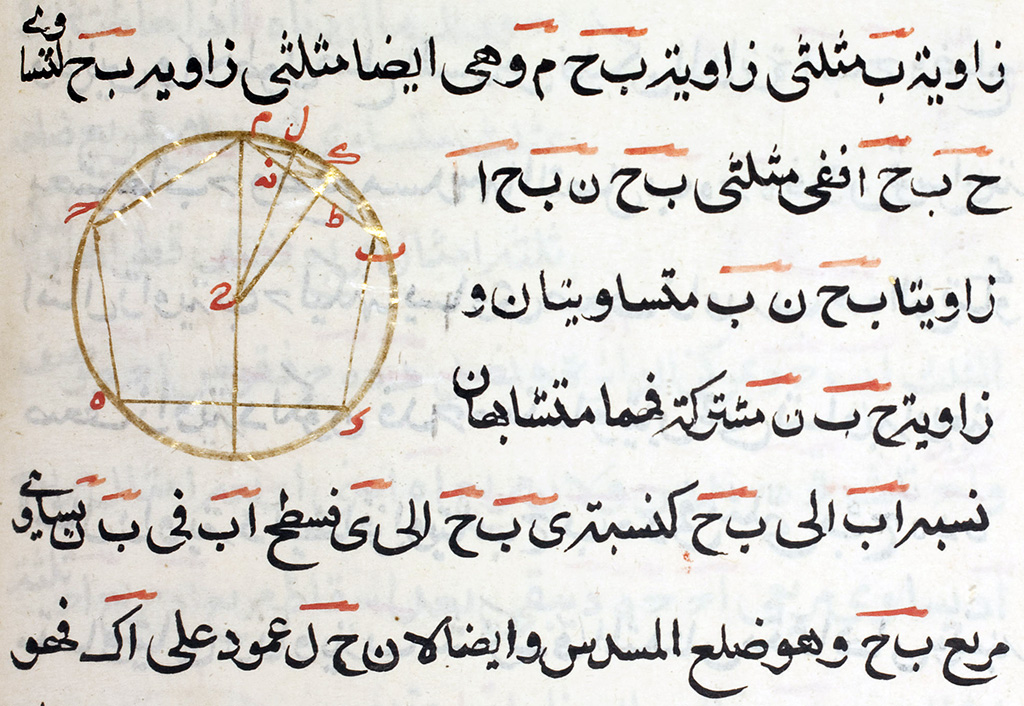 زاوية ب مثلثى زاوية ب ح م وهى ايضا مثلثى زاويه ب ح لتساوى
ح ب ح ا ففى مثلثى ب ح ن ب ح ا
زاويتا ب ح ن ب متساويتان و
زاوية ح ب ن مشتركة فهما متشابهان
نسبه ا ب الى ب ح كنسبة ى ب ح الى ى فسطح ا ب فى ب ن يساوى
مربع ب ح وهو ضلع المسدس وايضا لان ح ل عمود على ا ك فهو
م
ل
ك
ن
ح
ط
ب
ح
ه
د